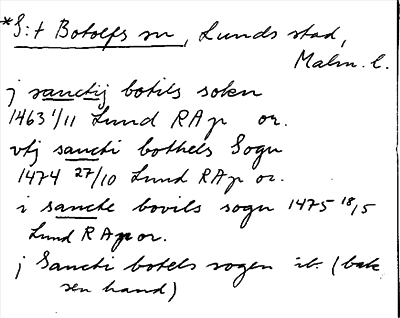 *S:t Botolfs sn, Lunds stad,
Malm. l.
j sanctij botils sokn
1463 1/11 Lund RAp or.
vtj sancti bothels Sogn
1474 27/10 Lund RAp or.
i sancte bovils sogn 1475 18/5
Lund RAp or.
j Sancti botels sogen ib. (bak
sen hand)